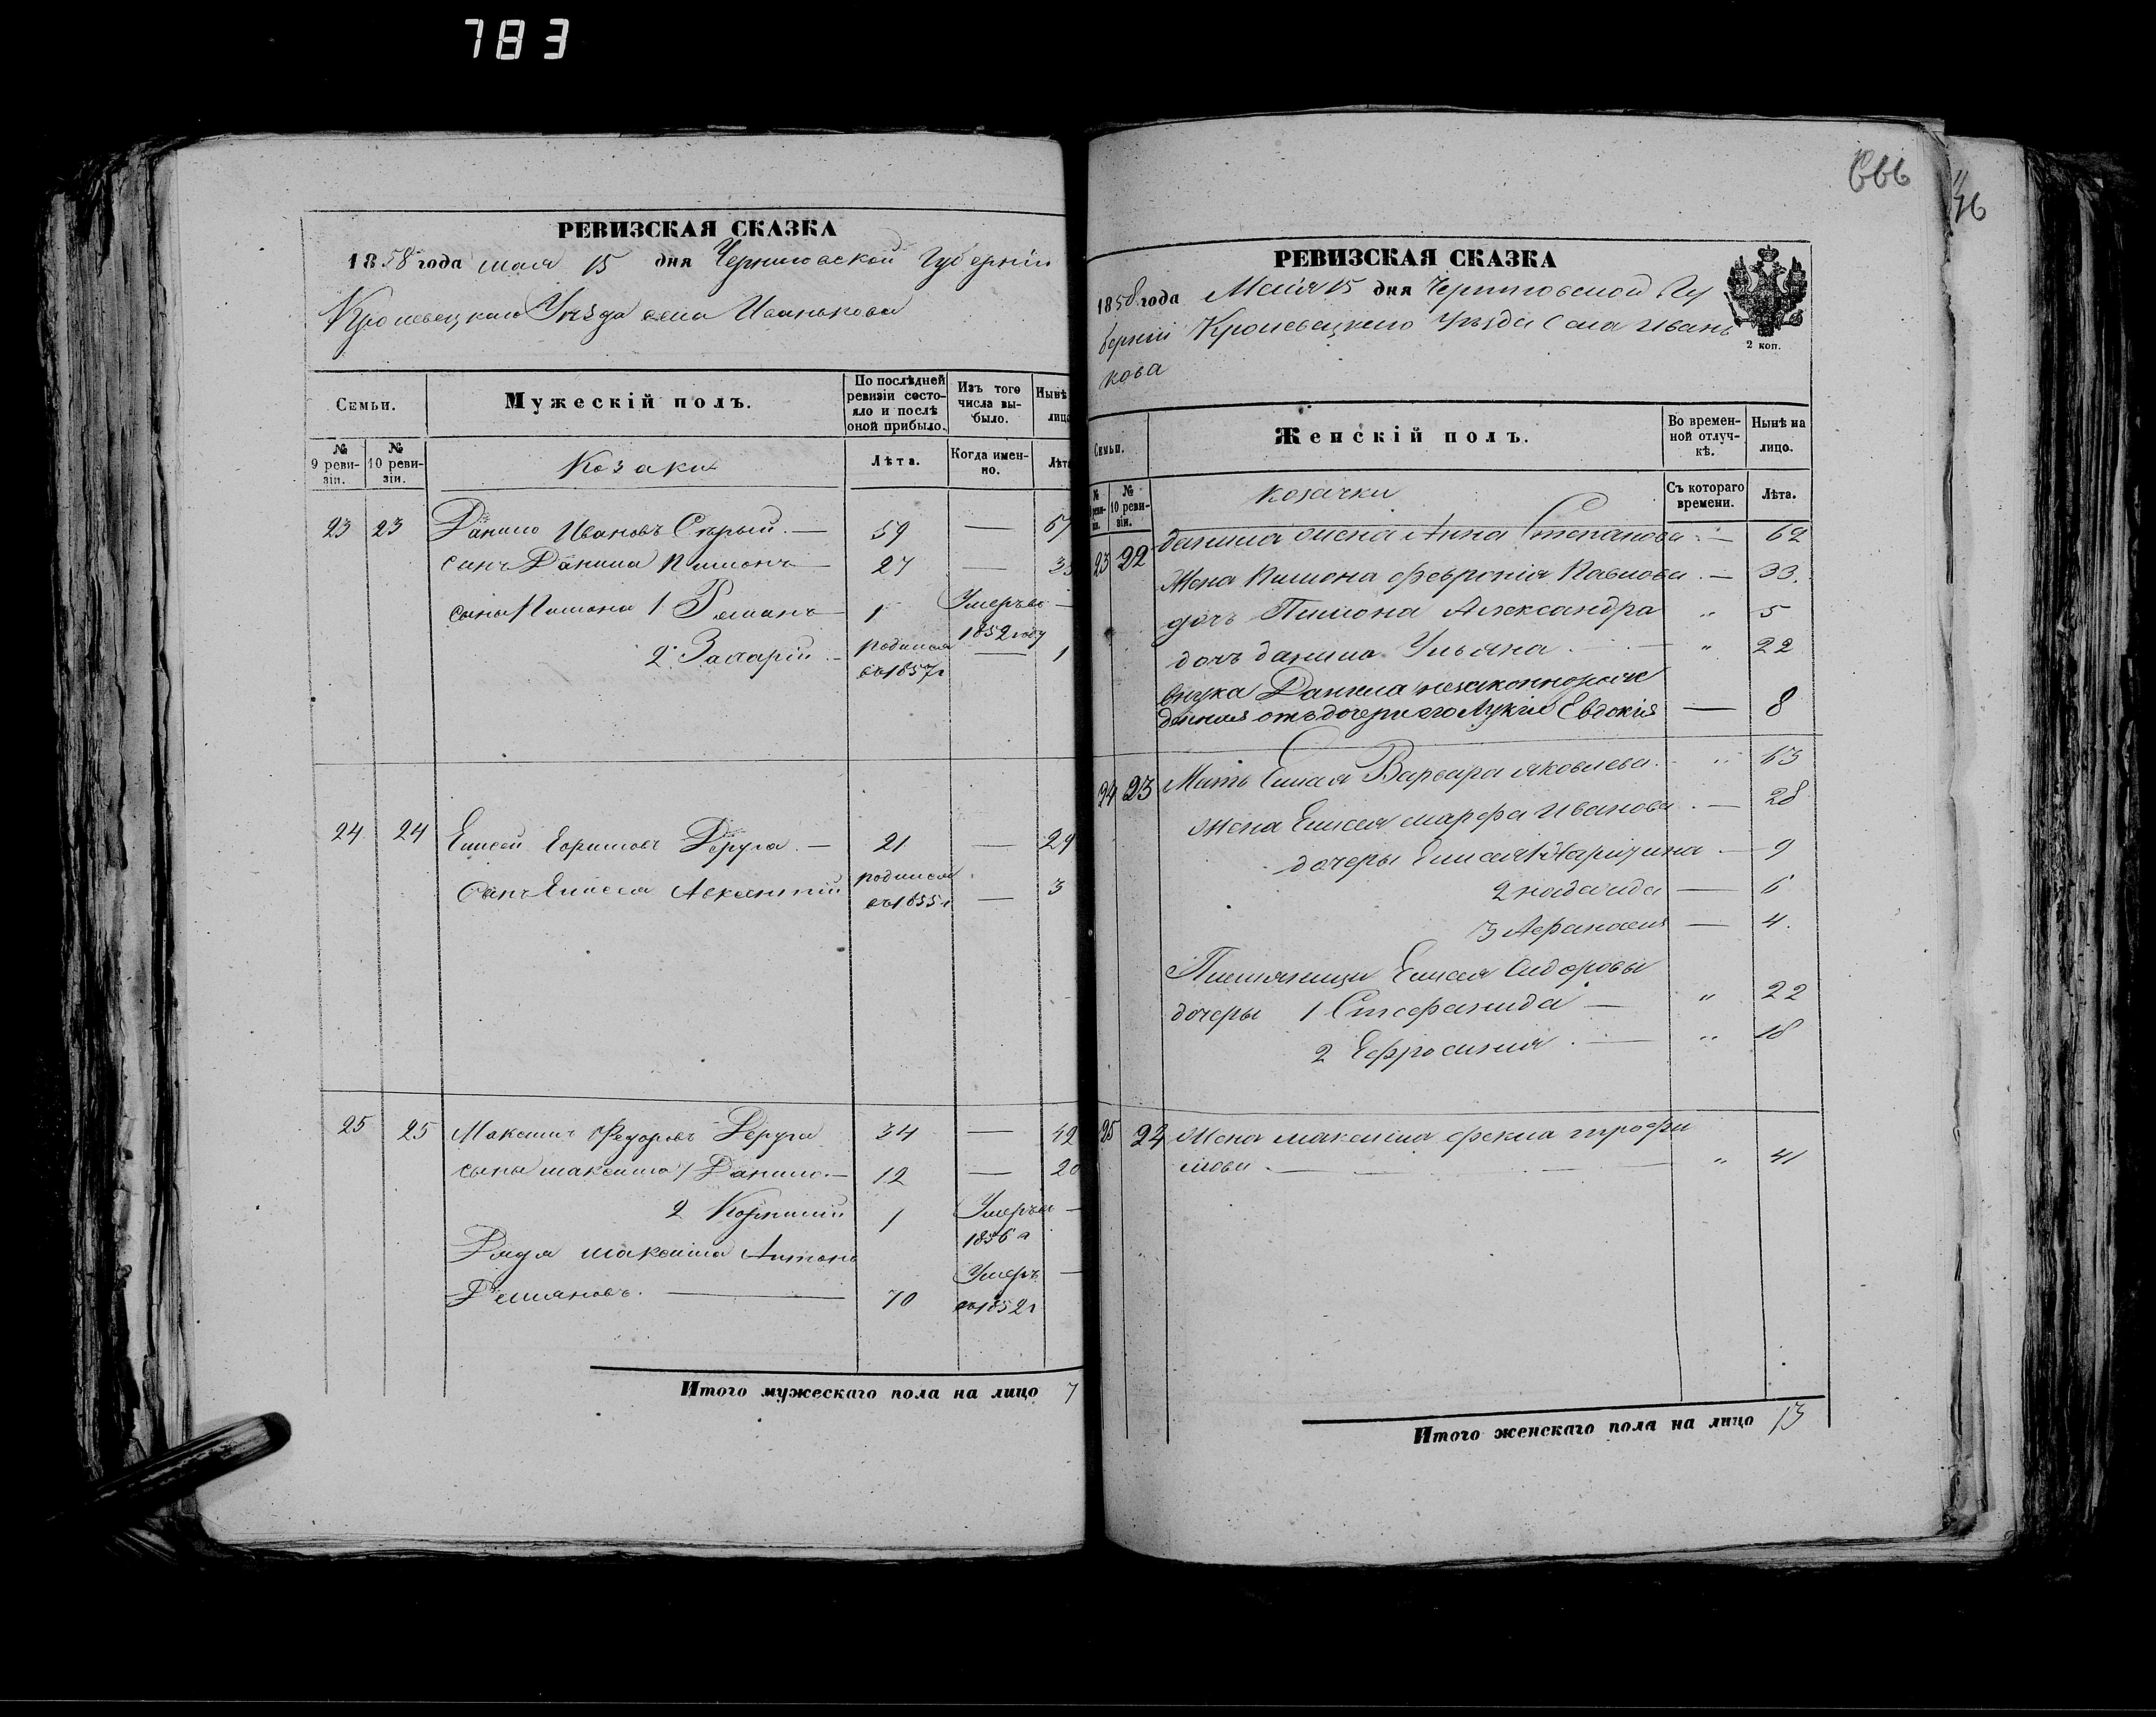 783
РЕВИЗСКАЯ СКАЗКА
1858 года мая 15 дня Черниговской Губернiи
Кролевецкаго Уѣзда села Иванькова
Семьи.
Мужескiй полъ.
По послѣдней ревизiи состояло и послѣ оной прибыло.
Изъ того числа выбыло.
Нынѣ
лицо
№ 9 ревизiи.
№ 10 ревизiи.
Козаки
Лѣта.
Когда именно.
Лѣта
23 23 Данило Ивановъ Сѣрый. — 59 — 67
сынъ Данила Пимонъ — 27 — 35
сыны Пимона 1 Романъ — 1 Умеръ въ 1852 году —
2. Захарiй — родился въ 1857 г — 1
24 24 Елисей Ефимовъ Деруга. — 21 — 29
Сынъ Елисея Авксентiй родился въ 1855 г — 3
25 25 Максимъ Федоровъ Деруга 34 — 42
сыны максима 1 Данило. — 12 — 20
2 Корнилiй 1 Умеръ въ 1856 г —
Дядя максима Антонъ
Демяновъ. — 70 Умеръ въ 1852 г —
Итого мужескаго пола на лицо 7
666
76
РЕВИЗСКАЯ СКАЗКА
1858 года Маiя 15 дня Черниговской Гу
бернiи Кролевецкаго Уѣзда Села Ивань
кова
2 коп.
Семьи.
Женскiй полъ.
Во временной отлучкѣ.
Нынѣ на лицо.
№ 10 ревизiи.
козачки
Съ котораго времени.
Лѣта.
23 22 данила жена Анна Степанова — 62
Жена Пимона Феврония Павлова. — 33.
дочь Пимона Александра " 5
дочь данила Ульяна — " 22
внука Данила незаконнорож
денная отъ дочери его Лукiи Евдокiя — 8
24 23 Мать Елисея Варвара яковлева. " 63
Жена Елисея марфа Иванова. — 28
дочеры Елисея 1 — 9
2 — 6
3 Афанасия — 4.
Племяницы Елисея Сидоровы
дочеры 1 Стефанида — " 22
2 Ефросиния. — " 18
25 24 Жена максима фекла трофи
мова. — " 41
Итого женскаго пола на лицо 13